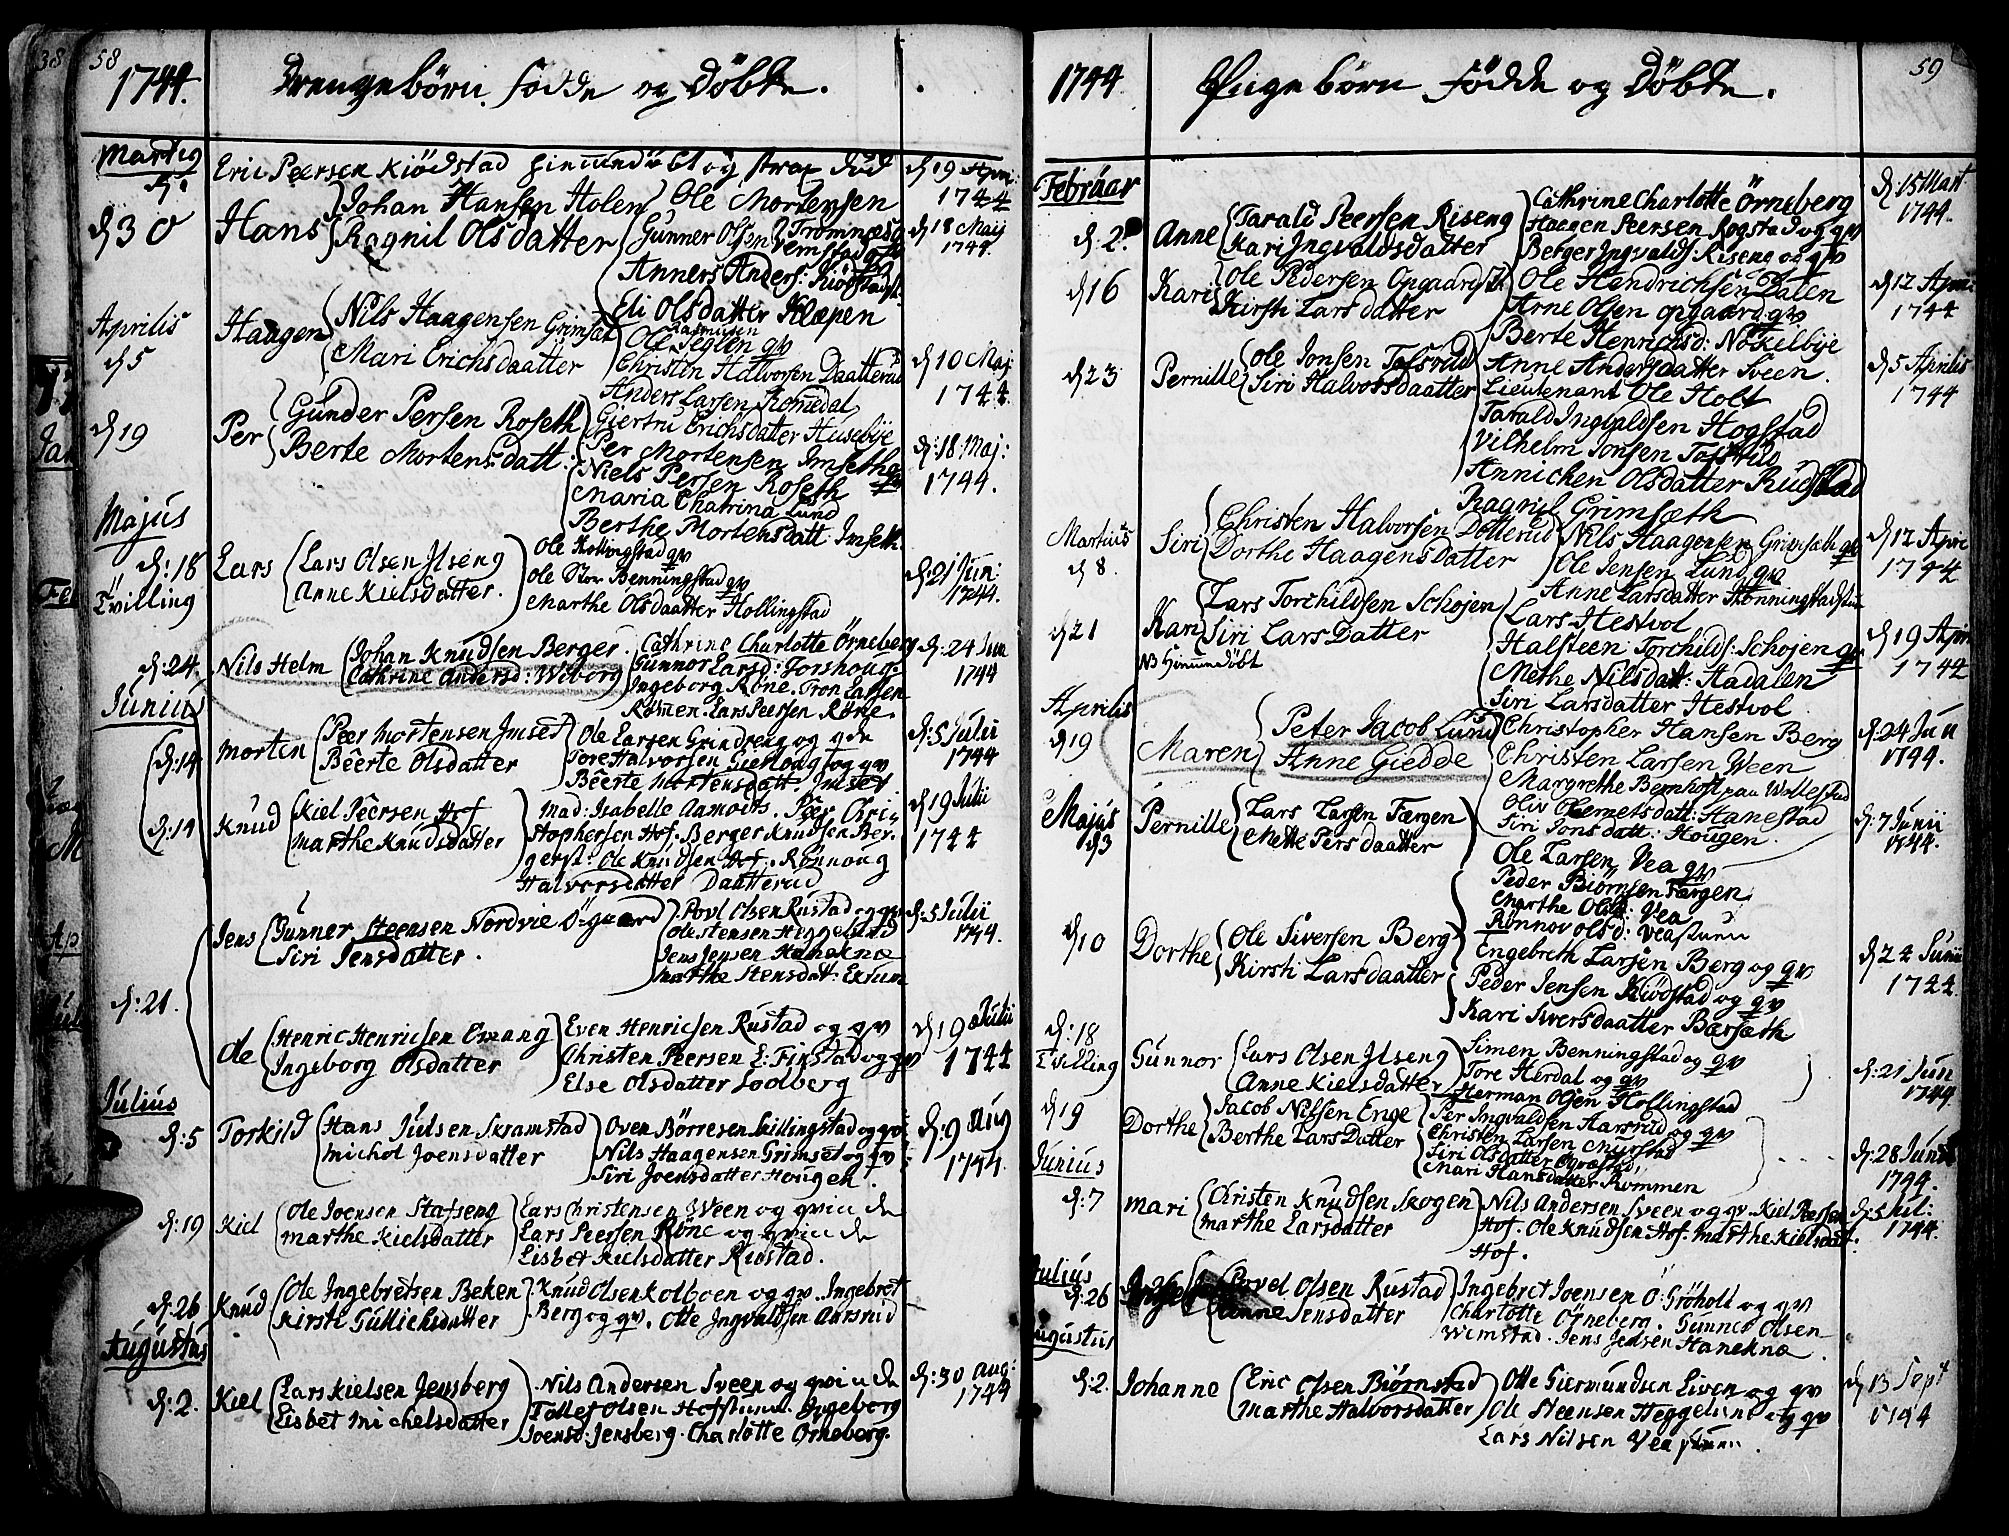 58
1744. Drengebörn födde og döbte.
Martiq
Eric Peersen Kiödstad og strax död
d 19 Apri:
1744
d 30
Hans
Johan Hansen Holen
Ragnil Olsdatter
Ole Mortensen
Gunner Olsen
Anners Anders: Kiödstad
Eli Olsdatter Klæpen
d 18 Maij
1744.
Aprilis
d 5
Haagen
Nils Haagensen Grimsæt
Mari Erichsdaatter
Rasmusen
Ole Seglen qv
Christen Halvorsen Daatterud
Anders Larsen Romedal
d 10 Maj
1744.
d 19
Per
Gunder Persen Roseth
Berte Mortensdatt:
Giertru Erichsdatter Husebije
Per Mortensen Imseth qv
Niels Persen Roseth
Maria Chatrina Lund
Berthe Mortensdatt Imseth.
d: 18: Maj:
1744.
Majus
d: 18
Tvilling
Lars
Lars Olsen Ilseng
Anne Kielsdatter.
Ole Hollingstad qv
Ole Stor Benningstad qv
Marthe Olsdaatter Hollingstad
d: 21 Jun:
1744.
d: 24
Nils Helm
Johan Knudsen Berger.
Cathrine Andersd: Wiborg
Cathrine Charlotte Örneberg
Gunnor Larsd: Forshoug.
Ingeborg Röne. Tron Larsen
Römen. Lars Peersen Röne.
d: 24 Jun
1744
Junius
d: 14
Morten
Peer Mortensen Imset
Beerte Olsdatter
Ole Larsen Grindreng og qde
Tore Halvorsen og qv
Beerte Mortensdatt. Imset
d: 5 Julii
1744
d: 14
Knud
Kiel Peersen Hof
Marthe Knudsdatter
Mad: Isabelle Aamodts. Peer Chri
stophersen Hof; Berger Knudsen Ber.
gerst: Ole Knudsen Hof. Rönnoug
Halvorsdatter Daatterud
d 19 Julii
1744
d: 21.
Jens
Gunner Steensen Nordvie Ögaard
Siri Jensdatter.
Povl Olsen Rustad og qv
Ole Stensen Heggelund
Jens Jensen Hanekne
Marthe Stensdat: Exrum
d: 5 Julii
1744.
Ole
Henric Henricsen Emang
Ingeborg Olsdatter
Even Henricsen Rustad og qv
Christen Peersen L: Finstad og qv
Else Olsdatter Lodberg
d 19 Julii
1744
Julius
d: 5
Torkild
Hans Julsen Skramstad
Michol Joensdatter
Oven Börresen Skillingstad og qv
Nils Haagensen Grimset og qv
Siri Joensdatter Hougen.
d: 9 Aug
1744
d: 19
Kiel
Ole Joensen Stafseng
Marthe Kielsdatter
Lars Christensen Sveen og qvinde
Lars Peersen Röne og qvinde
Lisbet Kielsdatter Rustad.
d: 26
Knud
Ole Ingebretsen Beken
Kirsti Gullichsdatter
Knud Olsen Kolboen og qv. Ingebret
Berg og qv. Otte Ingvaldsen Aarsrud
Augustus
d: 2.
Kiel
Lars Kielsen Jensberg
Lisbet Michelsdatter
Nils Andersen Sveen og qvinde
Tollef Olsen Hofstuen. Ingeborg
Joensd: Jensberg. Charlotte Örneberg.
d: 30 Aug:
1744
59
1744 Pigebörn födde og döbte.
Februar
d. 2.
Anne
Tarald Peersen Riseng
Kari Ingvaldsdatter
Cathrine Charlotte Örneberg
Haagen Peersen Rogstad og qv
Berger Ingvalds: Riseng og qv
d: 15 Mart
1744.
d 16
Kari
Ole Pedersen Opgaard
Kirsti Larsdatter
Ole Hendrichsen Dalen
Arne Olsen Opgaard qv
Berte Henrichsd: Nökelbije
d 12 Apri:
1744
d 23
Pernille
Ole Jonsen Tofsrud
Siri Halvorsdaatter
Anne Andersdaatter Sveen.
Lieutenant Ole Holt
Tarald Ingvaldsen Hogstad
Vilhelm Jonsen Tofsrud
Annichen Olsdatter Rudstad
Ragnil Grimsæth
d 5 Aprilis
1744
Martius
d 8.
Siri
Christen Halvorsen Dotterud
Dorthe Haagensdatter
Nils Haagensen Grimsæth qv
Ole Jensen Lund qv
Anne Larsdatter Rönningstadstuen
d 12 Apri
1744
d 21
Kari
NB Hjemmedöbt
Lars Torchildsen Schojen
Siri LarsDatter
Lars Hestvol
Halsteen Torchilds: Schojen qv
Methe Nilsdatt: Hadalen
Siri Larsdatter Hestvol
d 19 Apri
1744
Aprilis
d 19
Maren
Peter Jacob Lund
Anne Giedde
Christopher Hansen Berg
Christen Larsen Veen
Margrethe Bernhoft paa Wollestad
Oliv Clemetsdatt: Hanestad
Siri Jonsdatt: Hougen.
d: 24 Jun
1744.
Majus
d 3
Pernille
Lars Larsen Færgen
Mette Persdaatter
Ole Larsen Vea qv
Peder Biörnsen Færgen
Marthe Olsd: Vea
Rönnov Olsd: Veastuen
d: 7 Junii
1744.
d 10
Dorthe
Ole Siversen Berg
Kirsti Larsdaatter
Engebreth Larsen Berg og qv
Peder Jensen Kiödstad og qv
Kari Siversdaatter Bærsæth
d 24 Junii
1744.
d: 18
Tvilling
Gunnor
Lars Olsen Ilseng
Anne Kielsdatter
Simen Benningstad og qv
Tore Herdal og qv
Herman Olsen Hollingstad
d: 21 Jun
1744.
d 19
Dorthe
Jacob Nilsen Enge
Berthe LarsDatter
Per Ingvaldsen Harsrud
Christen Larsen Myrstad og qv
Siri Olsdatter
Mari Hansdatter Rommen
d: 28 Junii
1744.
Junius
d: 7
Mari
Christen Knudsen Skogen
Marthe Larsdatter
Nils Andersen Sveen og qv. Kiel Peersen
Hof. Ole Knudsen Hof. Marthe Kielsdat:
Hof.
d: 5 Jul:
1744.
Julius
d: 26
Povel Olsen Rustad
Anne Jensdatter
Ingebret Joensen Ö: Gröholt og qv
Charlotte Örneberg. Gunner Olsen
Wimstad. Jens Jensen Hanekne
Augustus
d: 2.
Johanne
Eric Olsen Biörnstad
Marthe Halvorsdatter
Otte Giermundsen Liven og qv
Ole Steensen Heggelund og qv
Lars Nilsen Veastuen.
d 13 Sept
1744